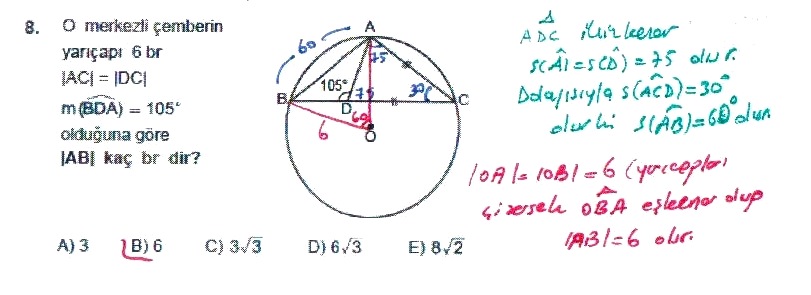 8. O merkezli çemberin
yarıçapı 6 br
|AC| = |DC|
m(BDA) = 105°
olduğuna göre
|AB| kaç br dir?
A
60
75
105°
75
30°
B
D
C
60
6
O
A) 3 B) 6 C) 3√3 D) 6√3 E) 8√2
ADC ikizkenar
s(A) = s(D) = 75 olur.
Dolayısıyla s(ACD) = 30°
olur ki s(AB) = 60° olur.
|OA| = |OB| = 6 (yarıçaplar)
çizersek OBA eşkenar olup
|AB| = 6 olur.